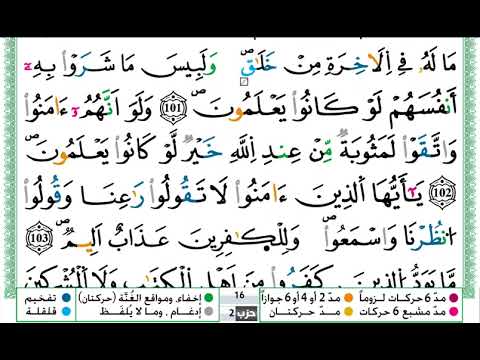 مَا لَهُۥ فِے اِ۬لَاخِرَةِ مِنْ خَلَٰقٖۖ وَلَبِيسَ مَا شَرَوْاْ بِهِۦٓ
أَنفُسَهُمْ لَوْ كَانُواْ يَعْلَمُونَۖ 101 وَلَوَ اَنَّهُمُۥٓ ءَامَنُواْ
وَاتَّقَوْاْ لَمَثُوبَةٞ مِّنْ عِندِ اِ۬للَّهِ خَيْرٞ لَّوْ كَانُواْ يَعْلَمُونَۖ
102 يَٰٓأَيُّهَا اَ۬لذِينَ ءَامَنُواْ لَا تَقُولُواْ رَٰعِنَا وَقُولُواْ
اُ۟نظُرْنَا وَاسْمَعُواْۖ وَلِلْكٰ۪فِرِينَ عَذَابٌ اَلِيمٞۖ 103
مَّا يَوَدُّ اُ۬لذِينَ كَفَرُواْ مِنَ اَهْلِ اِ۬لْكِتَٰبِ وَلَا اَ۬لْمُشْرِكِينَ
مدّ 6 حركات لزوماً مدّ 2 أو 4 أو 6 جوازاً 16 إخفاء، ومواقع الغُنَّة (حركتان) تفخيم
مدّ مشبع 6 حركات مدّ حركتان حزب 2 إدغام، وما لا يُلفَظ قلقلة